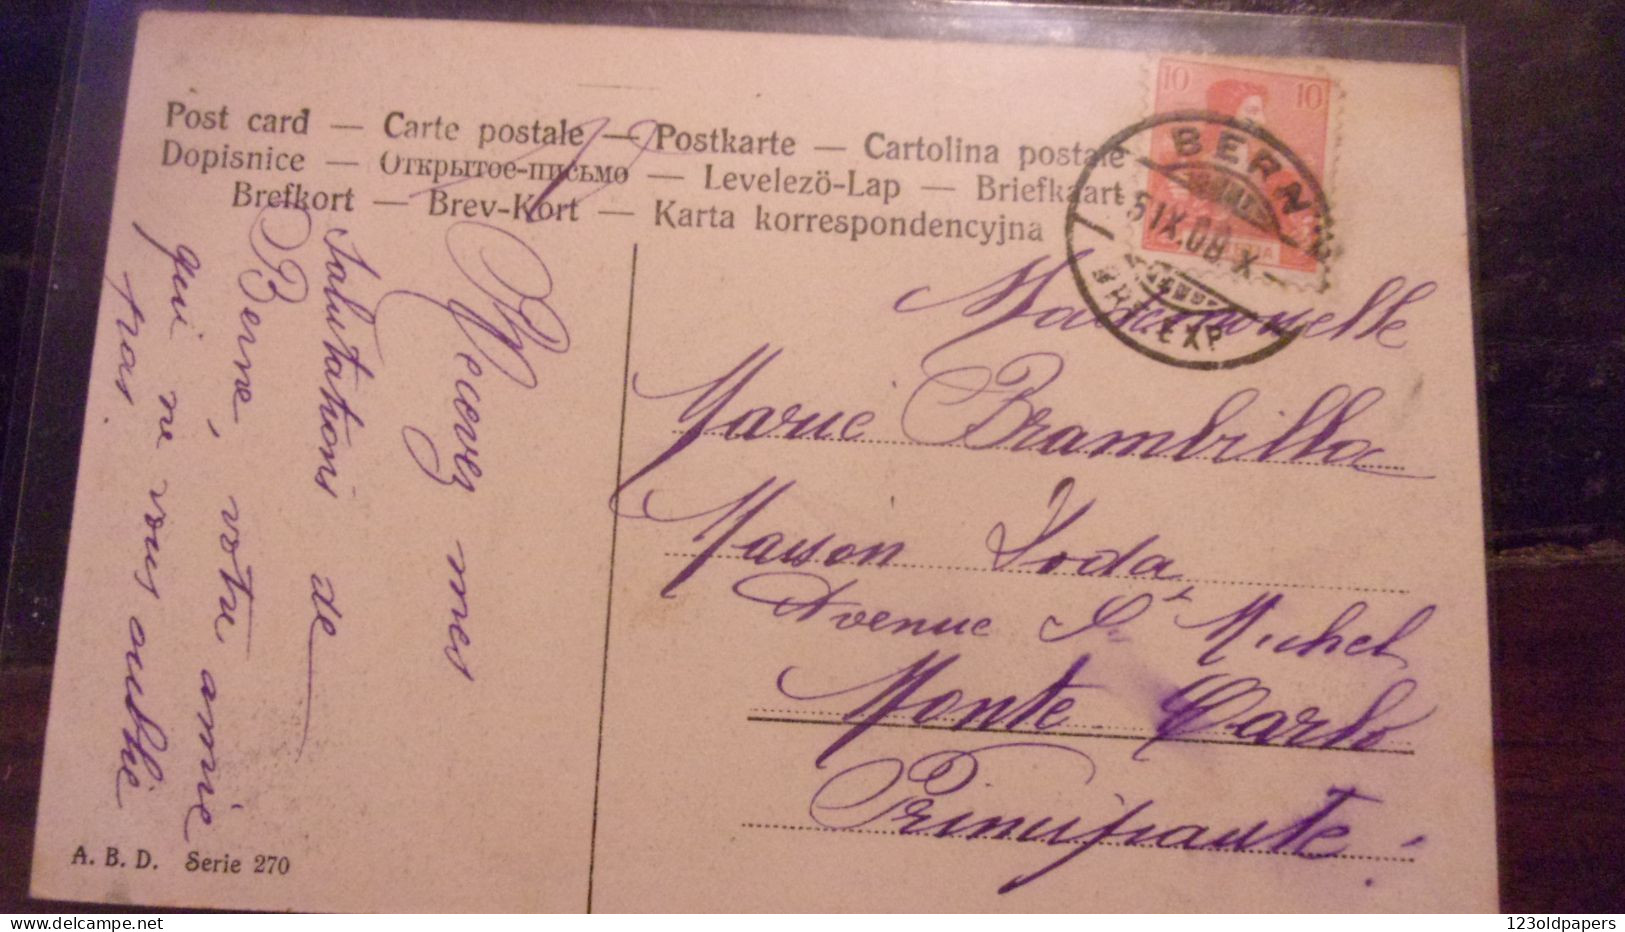 Post card — Carte postale — Postkarte — Cartolina postale
Dopisnice — Открытое-письмо — Levelezö-Lap — Briefkaart
Brefkort — Brev-Kort — Karta korrespondencyjna
10 10
BERN
5 IX.08 X
BRF. EXP.
Recevez mes
Salutations de
Berne, votre amie
qui ne vous oublie
pas.
Mademoiselle
Marie Brambilla
Maison
Avenue St Michel
Monte Carlo
Principauté.
A. B. D. Serie 270
123oldpapers